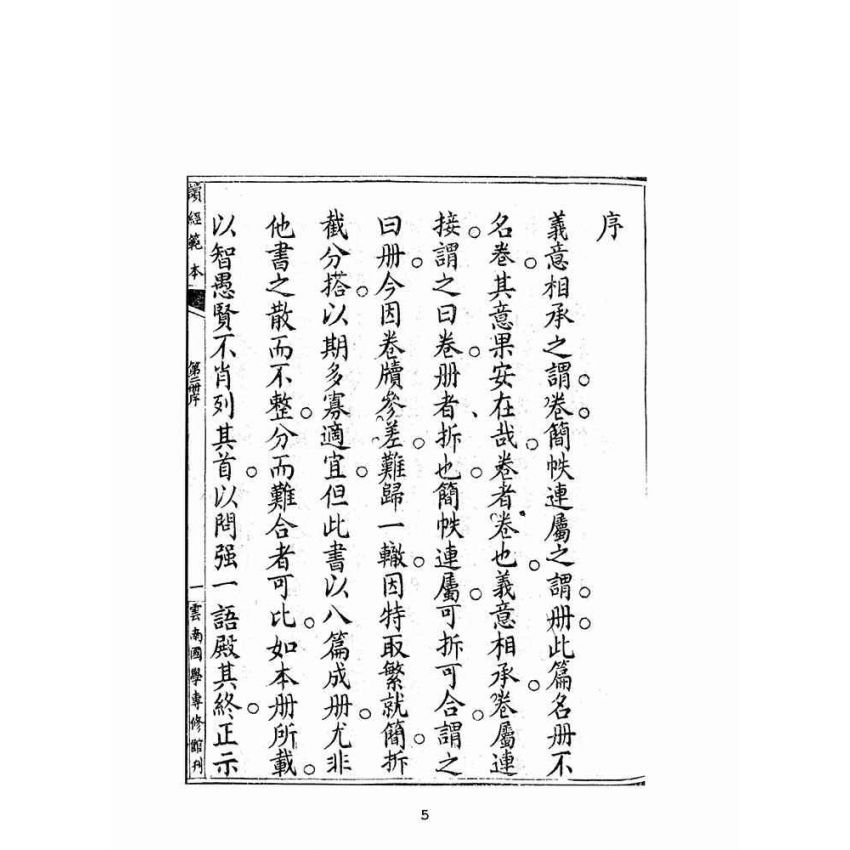 序
義意相承之謂卷。簡帙連屬之謂册。此篇名册不
名卷。其意果安在哉。卷者卷也。義意相承。卷屬連
接。謂之曰卷。册者、拆也。簡帙連屬。可拆可合。謂之
曰册。今因卷牘參差。難歸一轍。因特取繁就簡。拆
截分搭。以期多寡適宜。但此書以八篇成册。尤非
他書之散而不整。分而難合者可比。如本册所載。
以智愚賢不肖列其首。以問强一語殿其終。正示
讀經範本
第二册序
一
雲南國學專修館刋
5